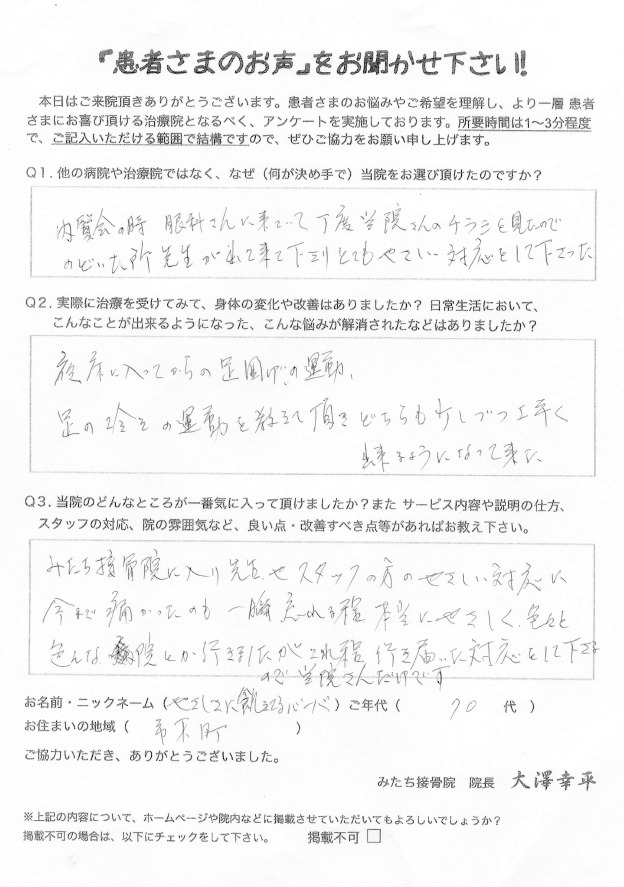 『患者さまのお声』をお聞かせ下さい!
本日はご来院頂きありがとうございます。患者さまのお悩みやご希望を理解し、より一層 患者
さまにお喜び頂ける治療院となるべく、アンケートを実施しております。所要時間は1〜3分程度
で、ご記入いただける範囲で結構ですので、ぜひご協力をお願い申し上げます。
Q1. 他の病院や治療院ではなく、なぜ(何が決め手で)当院をお選び頂けたのですか?
内覧会の時 眼科さんに来ていて丁度学院さんのチラシを見たので
のどいた所 先生が 来て下さりとてもやさしい対応をして下さった
Q2. 実際に治療を受けてみて、身体の変化や改善はありましたか? 日常生活において、
こんなことが出来るようになった、こんな悩みが解消されたなどはありましたか?
寝床に入ってからの足 の運動、
足の の運動を教えて頂きどちらも少しづつ上手く
出来るようになって来た
Q3. 当院のどんなところが一番気に入って頂けましたか?また サービス内容や説明の仕方、
スタッフの対応、院の雰囲気など、良い点・改善すべき点等があればお教え下さい。
みたち接骨院に入り先生やスタッフの方のやさしい対応に
今まで痛かったのも一瞬忘れる程 本当にやさしく、色々と
色んな病院とか行きましたがこれ程行き届いた対応をして下さる
ので学院さんだけです
お名前・ニックネーム(やさしさに飢えてるバーバ)ご年代( 70 代 )
お住まいの地域( 町 )
ご協力いただき、ありがとうございました。
みたち接骨院 院長 大澤幸平
※上記の内容について、ホームページや院内などに掲載させていただいてもよろしいでしょうか?
掲載不可の場合は、以下にチェックをして下さい。 掲載不可 □